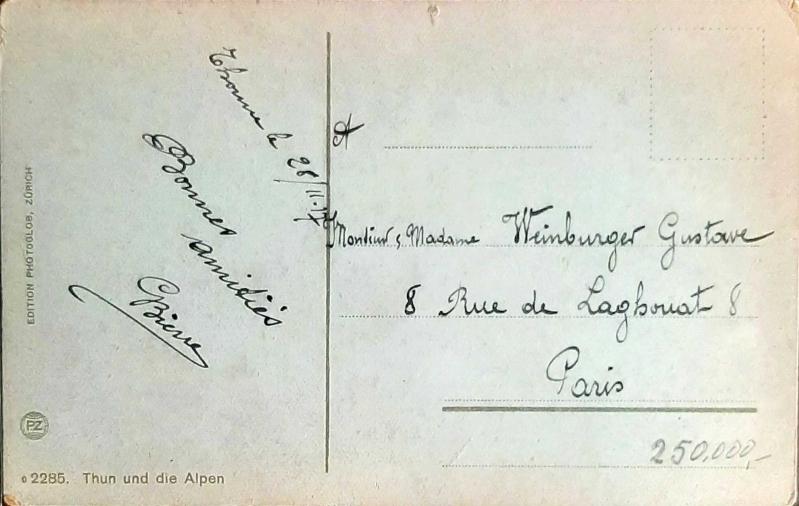 Thoune le 28/11.17
Bonnes
amitiés
A
Monsieur & Madame Weinburger Gustave
8 Rue de Laghouat 8
Paris
250.000,-
EDITION PHOTOGLOB, ZÜRICH
PZ
2285. Thun und die Alpen